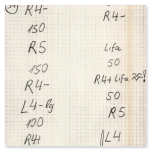 R4-
150
R5
150
R4-
L4-
100
R4+
R4-
Lifa
50
R4+ Lifa
50
R5
L4